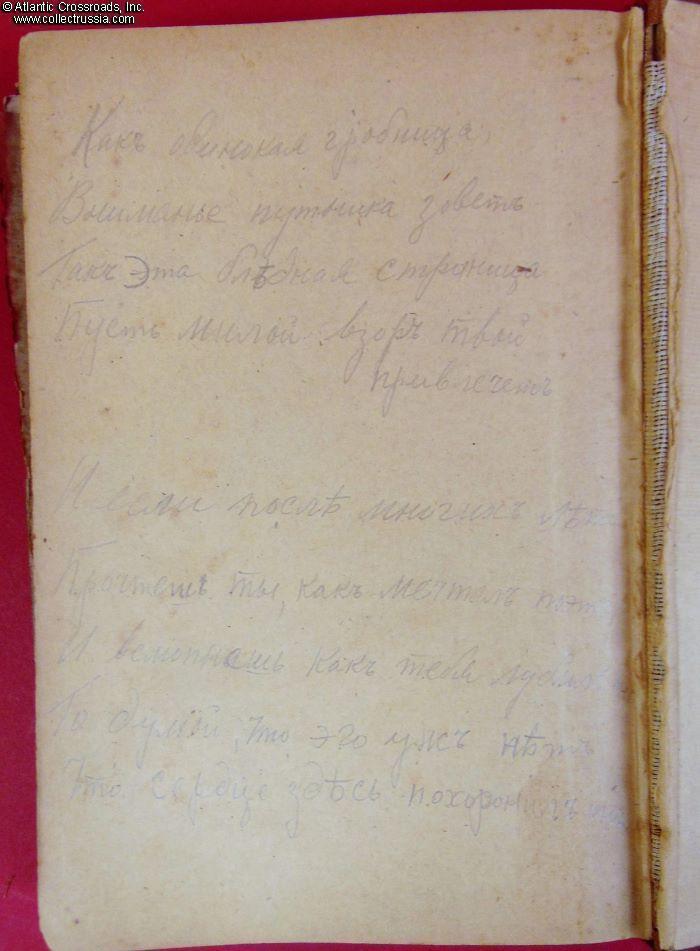 © Atlantic Crossroads, Inc.
www.collectrussia.com
Какъ одинокая гробница,
Вниманье путника зоветъ
Такъ эта блѣдная страница
Пусть милой взоръ твой
привлечетъ
И если послѣ многихъ
Прочтешь ты, какъ мечталъ
И вспомнешь какъ тебя
То думай, что эго ужъ нѣтъ
Что сердце здѣсь похоронилъ